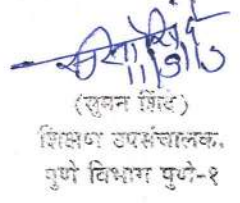 (सुमन शिंदे)
शिक्षण उपसंचालक,
पुणे विभाग पुणे-१